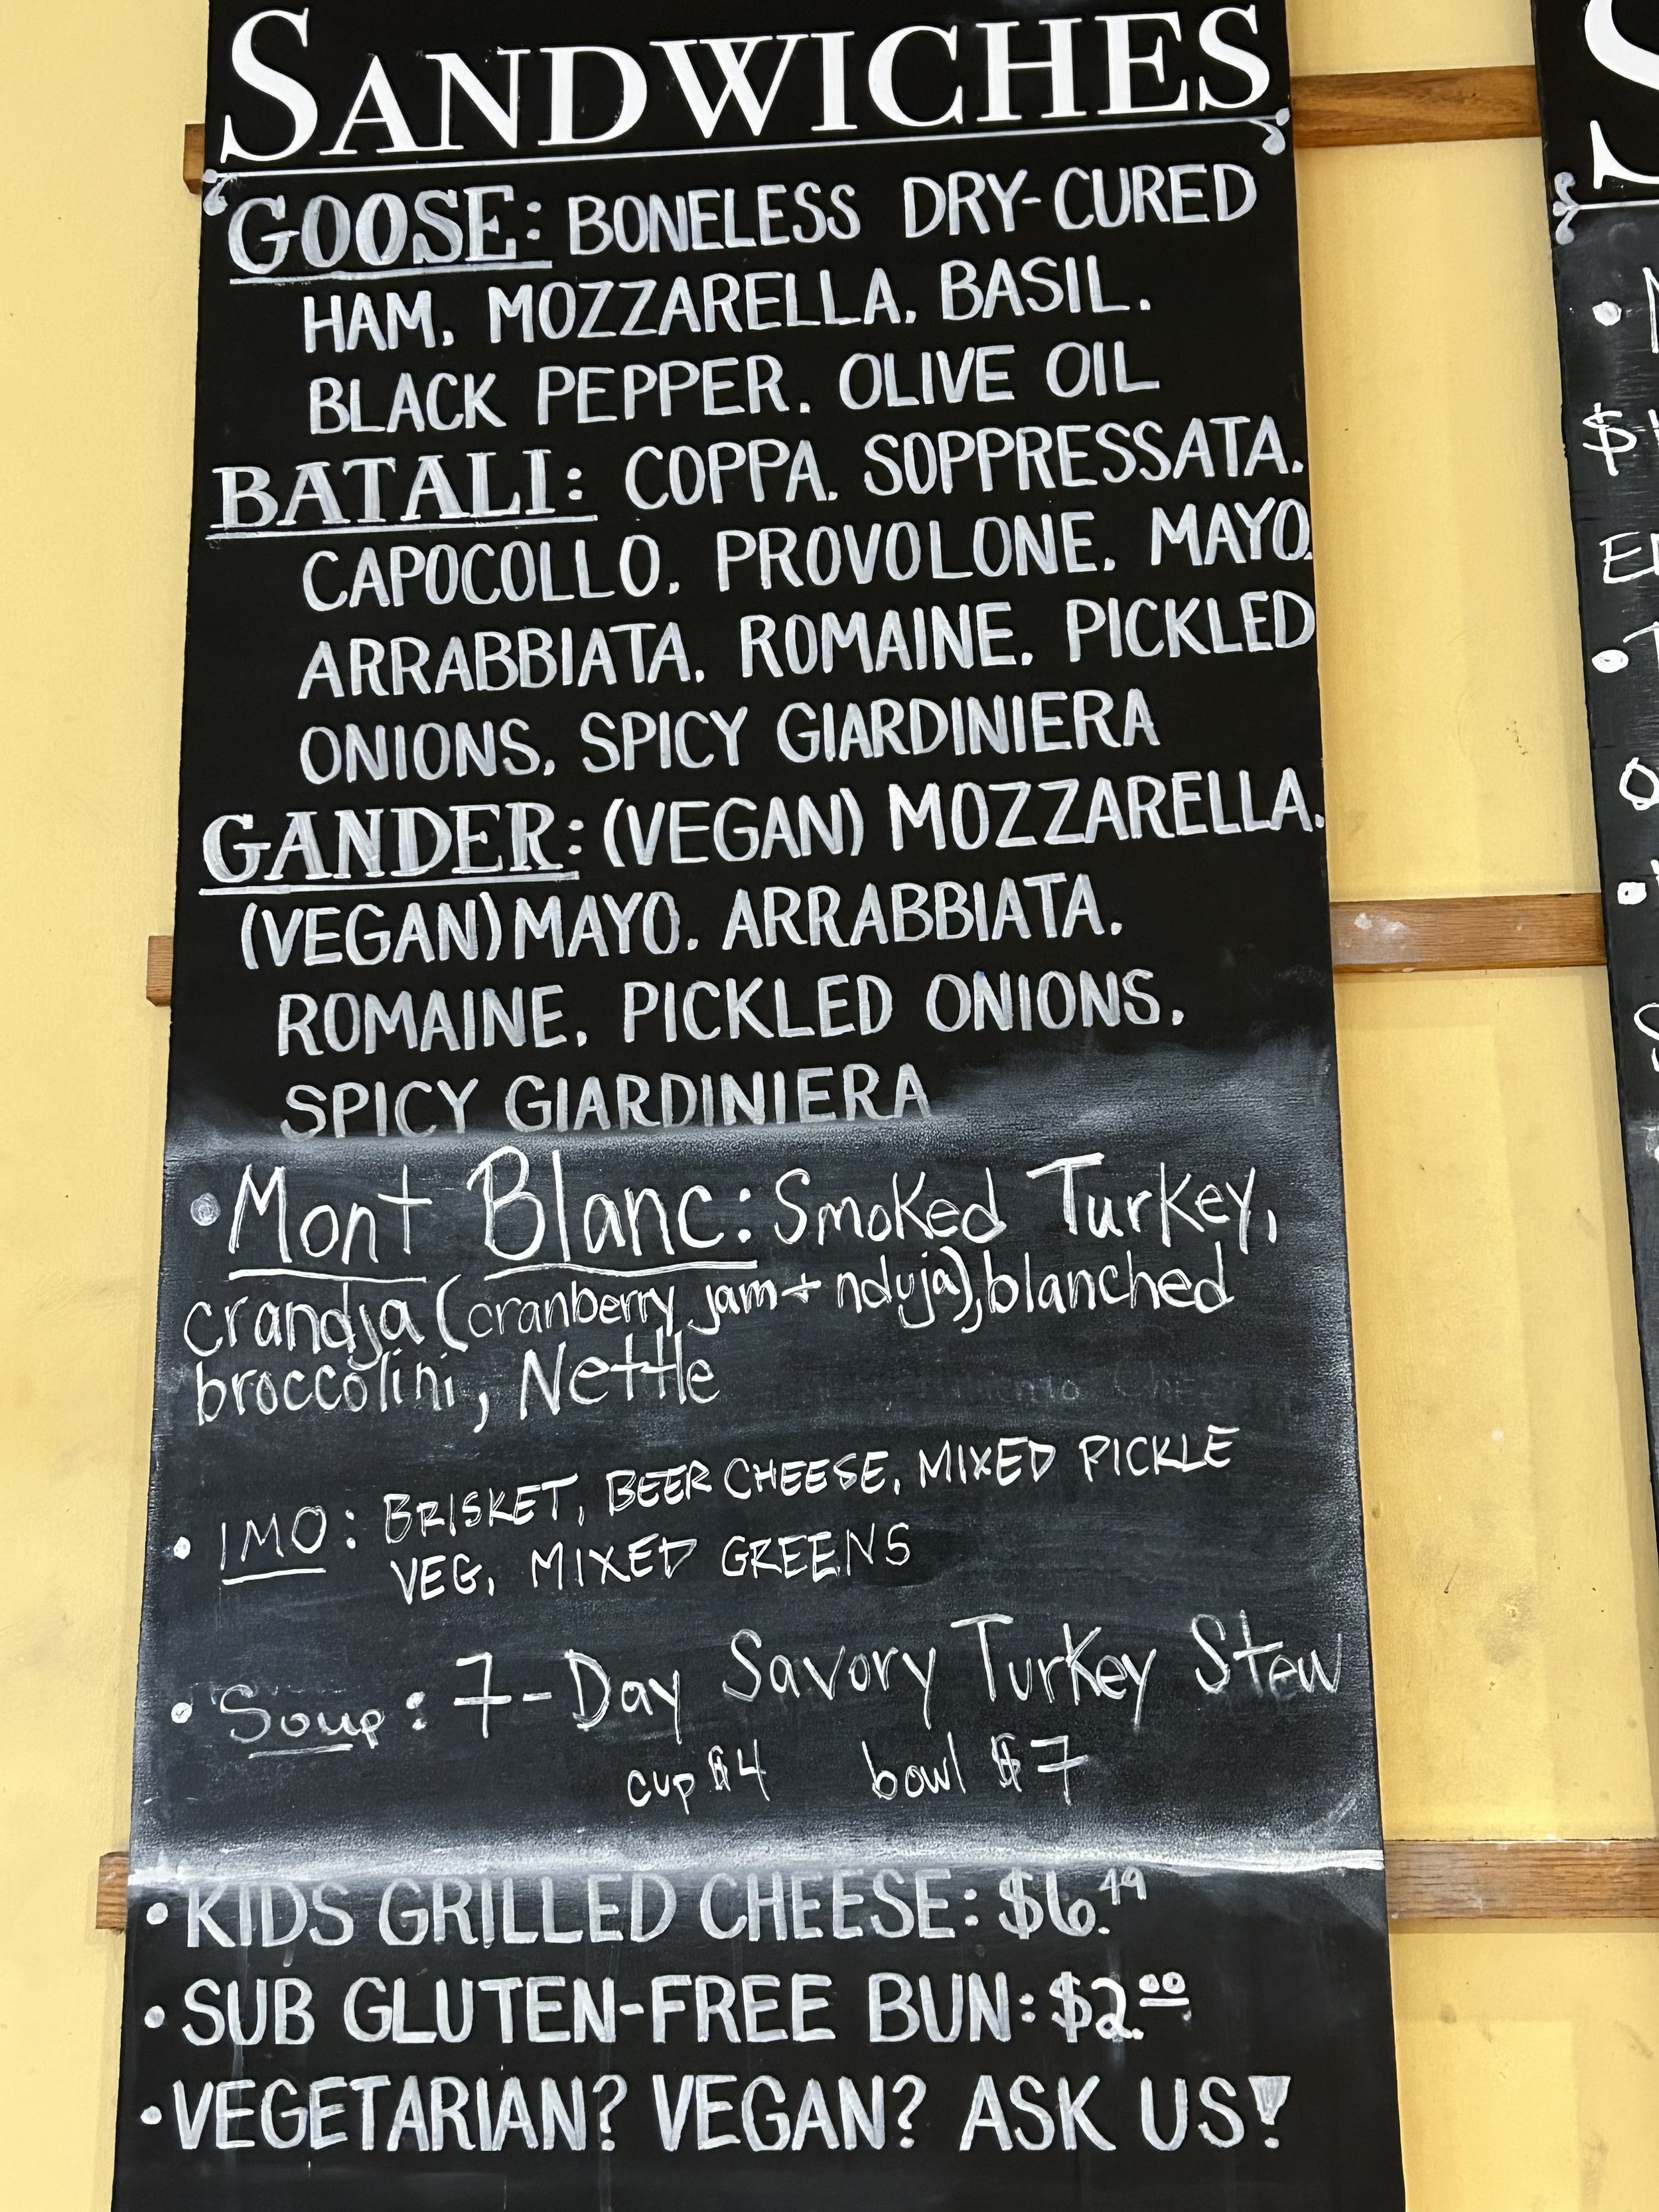 SANDWICHES
GOOSE: BONELESS DRY-CURED
HAM, MOZZARELLA, BASIL,
BLACK PEPPER, OLIVE OIL
BATALI: COPPA, SOPPRESSATA,
CAPOCOLLO, PROVOLONE, MAYO,
ARRABBIATA, ROMAINE, PICKLED
ONIONS, SPICY GIARDINIERA
GANDER: (VEGAN) MOZZARELLA,
(VEGAN) MAYO, ARRABBIATA,
ROMAINE, PICKLED ONIONS,
SPICY GIARDINIERA
• Mont Blanc: Smoked Turkey,
crandja (cranberry jam + nduja), blanched
broccolini, Nettle
• IMO: BRISKET, BEER CHEESE, MIXED PICKLE
VEG, MIXED GREENS
• Soup: 7-Day Savory Turkey Stew
cup $4 bowl $7
• KIDS GRILLED CHEESE: $6.49
• SUB GLUTEN-FREE BUN: $2.00
• VEGETARIAN? VEGAN? ASK US!